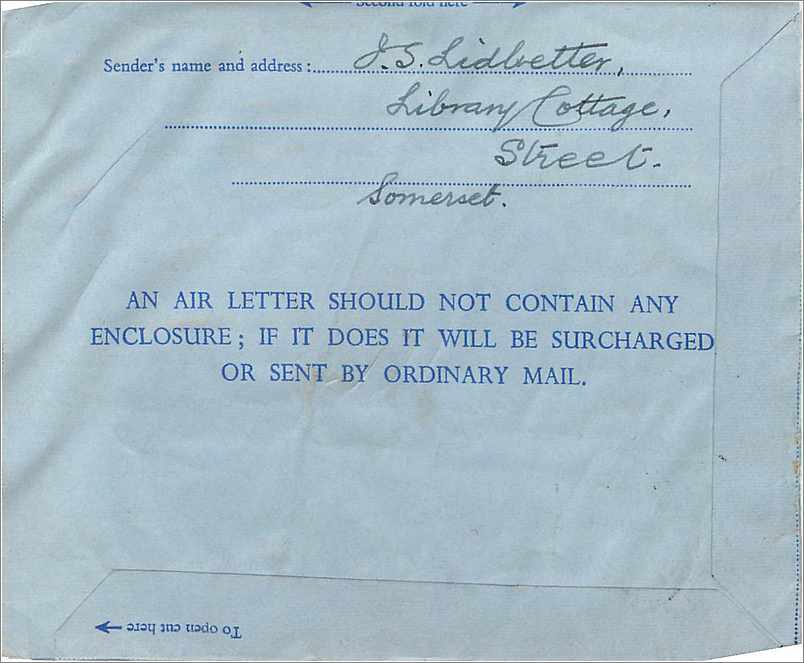 Second fold here
Sender's name and address: J. S. Lidbetter,
Library Cottage,
Street.
Somerset.
AN AIR LETTER SHOULD NOT CONTAIN ANY
ENCLOSURE; IF IT DOES IT WILL BE SURCHARGED
OR SENT BY ORDINARY MAIL.
To open cut here